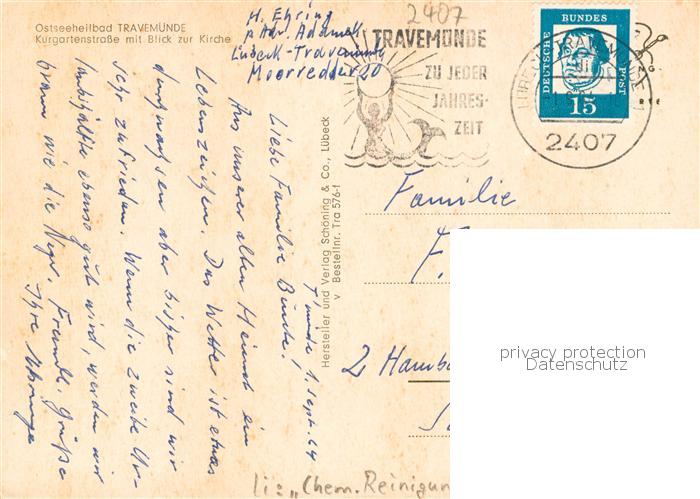 Ostseeheilbad TRAVEMÜNDE
Kurgartenstraße mit Blick zur Kirche
H. Ehring
p. Adr. Adamek
Lübeck-Travemünde
Moorredder 10
2407
TRAVEMÜNDE
ZU JEDER
JAHRES-
ZEIT
DEUTSCHE
BUNDES
POST
15
2407
Hersteller und Verlag Schöning & Co., Lübeck
v Bestellnr. Tra 576-1
T'münde 1. Sept. 64
Liebe Familie
Aus unserer alten Heimat ein
Lebenszeichen. Das Wetter ist etwas
durchwachsen aber bisher sind wir
sehr zufrieden. Wenn die zweite Ur-
laubshälfte ebenso gut wird, werden wir
braun wie die Neger. Freundl. Grüße
Ihre
Familie
F.
2 Hambu
li: "Chem. Reinigun
privacy protection
Datenschutz